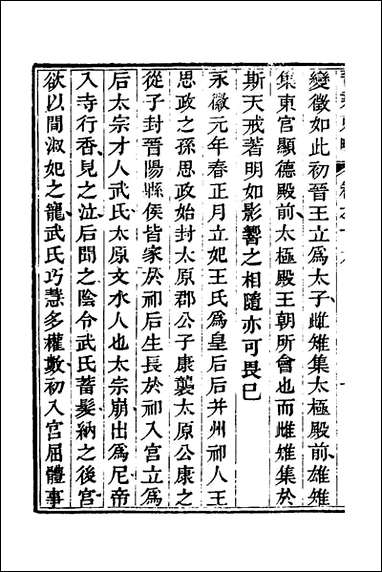 變徵如此初晉王立為太子雌雉集太極殿前雄雉
集東宮顯德殿前太極殿王朝所會也而雌雉集於
斯天戒著明如影響之相隨亦可畏已
永徽元年春正月立妃王氏為皇后后并州祁人王
思政之孫思政始封太原郡公子康襲太原公康之
從子封晉陽縣侯皆家於祁后生長於祁入宮立為
后太宗才人武氏太原文水人也太宗崩出為尼帝
入寺行香見之泣后聞之陰令武氏蓄髮納之後宮
欲以間淑妃之寵武氏巧慧多權數初入宮屈體事